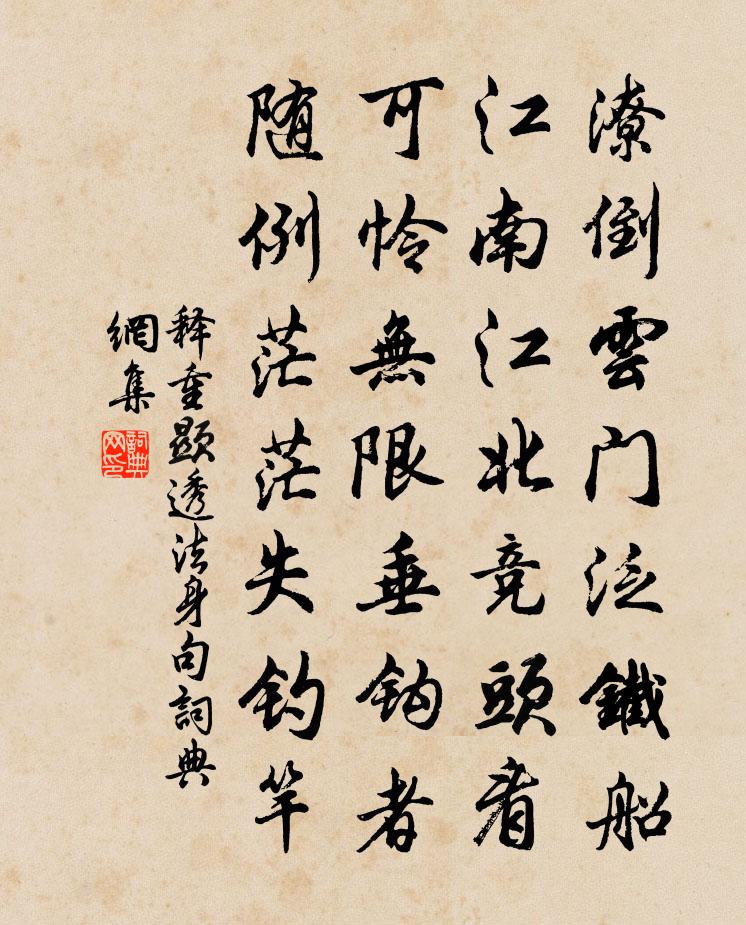 潦倒雲门泛鐵船
江南江北竞頭看
可怜無限垂钩者
随例茫茫失钓竿
释重顯透法身句詞典
網集
詞典网印